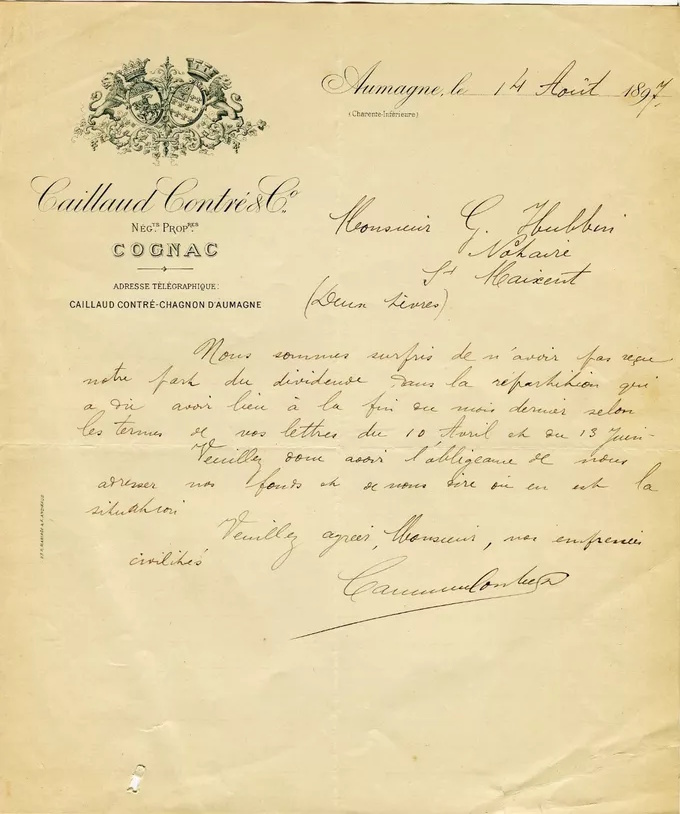 Aumagne, le 14 Août 1897
(Charente-Inférieure)
Caillaud Contré & Cº
NÉGTS PROPRES
COGNAC
ADRESSE TÉLÉGRAPHIQUE:
CAILLAUD CONTRÉ-CHAGNON D'AUMAGNE
Monsieur G.
Notaire
St Maixent
(Deux Sèvres)
Nous sommes surpris de n'avoir pas reçu
notre part du dividende dans la répartition qui
a dû avoir lieu à la fin du mois dernier selon
les termes de vos lettres du 10 Avril et du 13 Juin -
Veuillez donc avoir l'obligeance de nous
adresser nos fonds et de nous dire où en est la
situation
Veuillez agréer, Monsieur, nos empressées
civilités